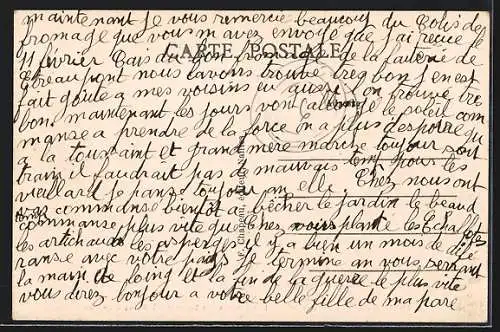 maintenant je vous remercie beaucoup du Colis de
fromage que vous m avez envoyé que j'ai reçue le
11 février
CARTE POSTALE
bon fromage de la
nous lavons trouvé treq bon J en est
fait goute a mes voisins eu aussi on trouvez tre
bon. maintenant les jours vont le soleil com
manse a prendre de la force En a plus d'espoire qu
a la toussaint et grand mere marche toujour
train il faudrait pas de mauvais temp pour les
vieillard je panse toujour an elle. Chez nous ont
commanse bientôt a bêcher le jardin le beaud
commanse plus vite que chez vous plante les Echal
les artichauds les asperges il y a bien un mois de
ranse avec votre pays Je termine an vous serrant
la main de loing et la fin de la guerre le plus vite
vous direz bonjour a votre belle fille de ma pare